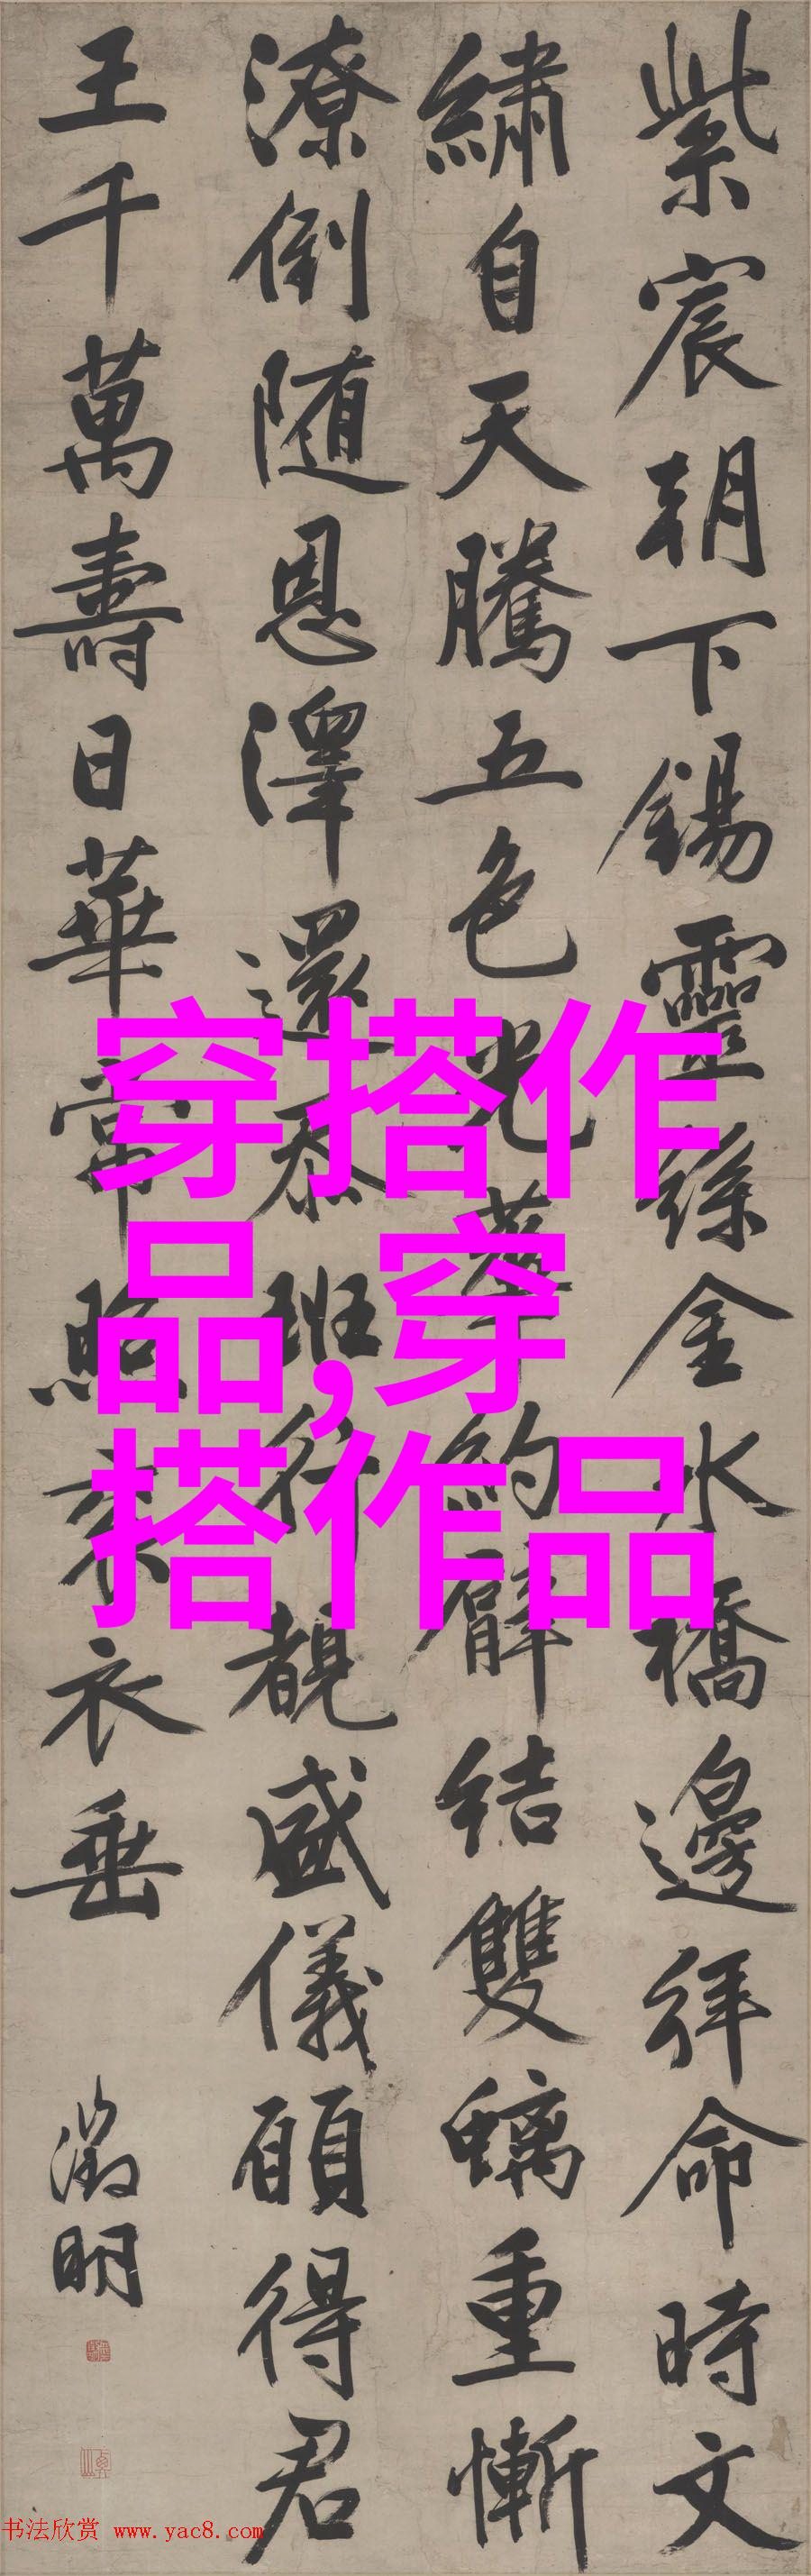 紫宸朝下錫靈絲金水橋邊拜命時文
繡自天騰五色光華約臂結雙螭重慚
潦倒随恩澤還忝班行覩盛儀願得君
王千萬壽日華常照袞衣垂
徵明
穿搭作
品,穿
搭作品
书法欣赏 www.yac8.com